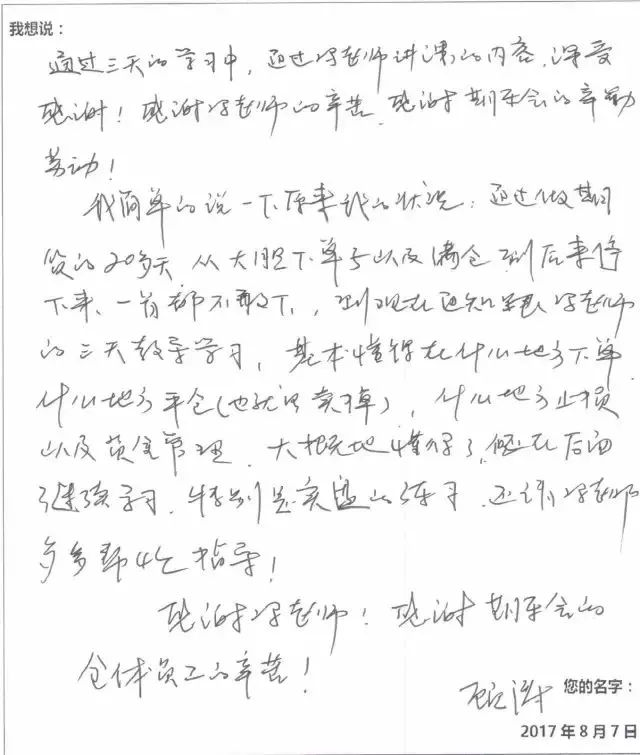 我想说：
通过三天的学习中，通过冯老师讲课的内容，深受
感谢！感谢冯老师的辛苦，感谢期乐会的辛勤
劳动！
我简单的说一下原来我的状况：通过做期
货的20多天 从大胆下单5以及满仓到后来停
下来、一首都不敢下，到现在通知跟冯老师
的三天教导学习，基本懂得在什么地方下单
什么地方平仓(也就是卖掉)，什么地方止损
以及资金管理，大概地懂得了，但在后面
继续学习，特别是实盘的练习，还请冯老师
多多帮忙指导！
感谢冯老师！感谢期乐会的
全体员工的辛苦！
您的名字：
2017年8月7日